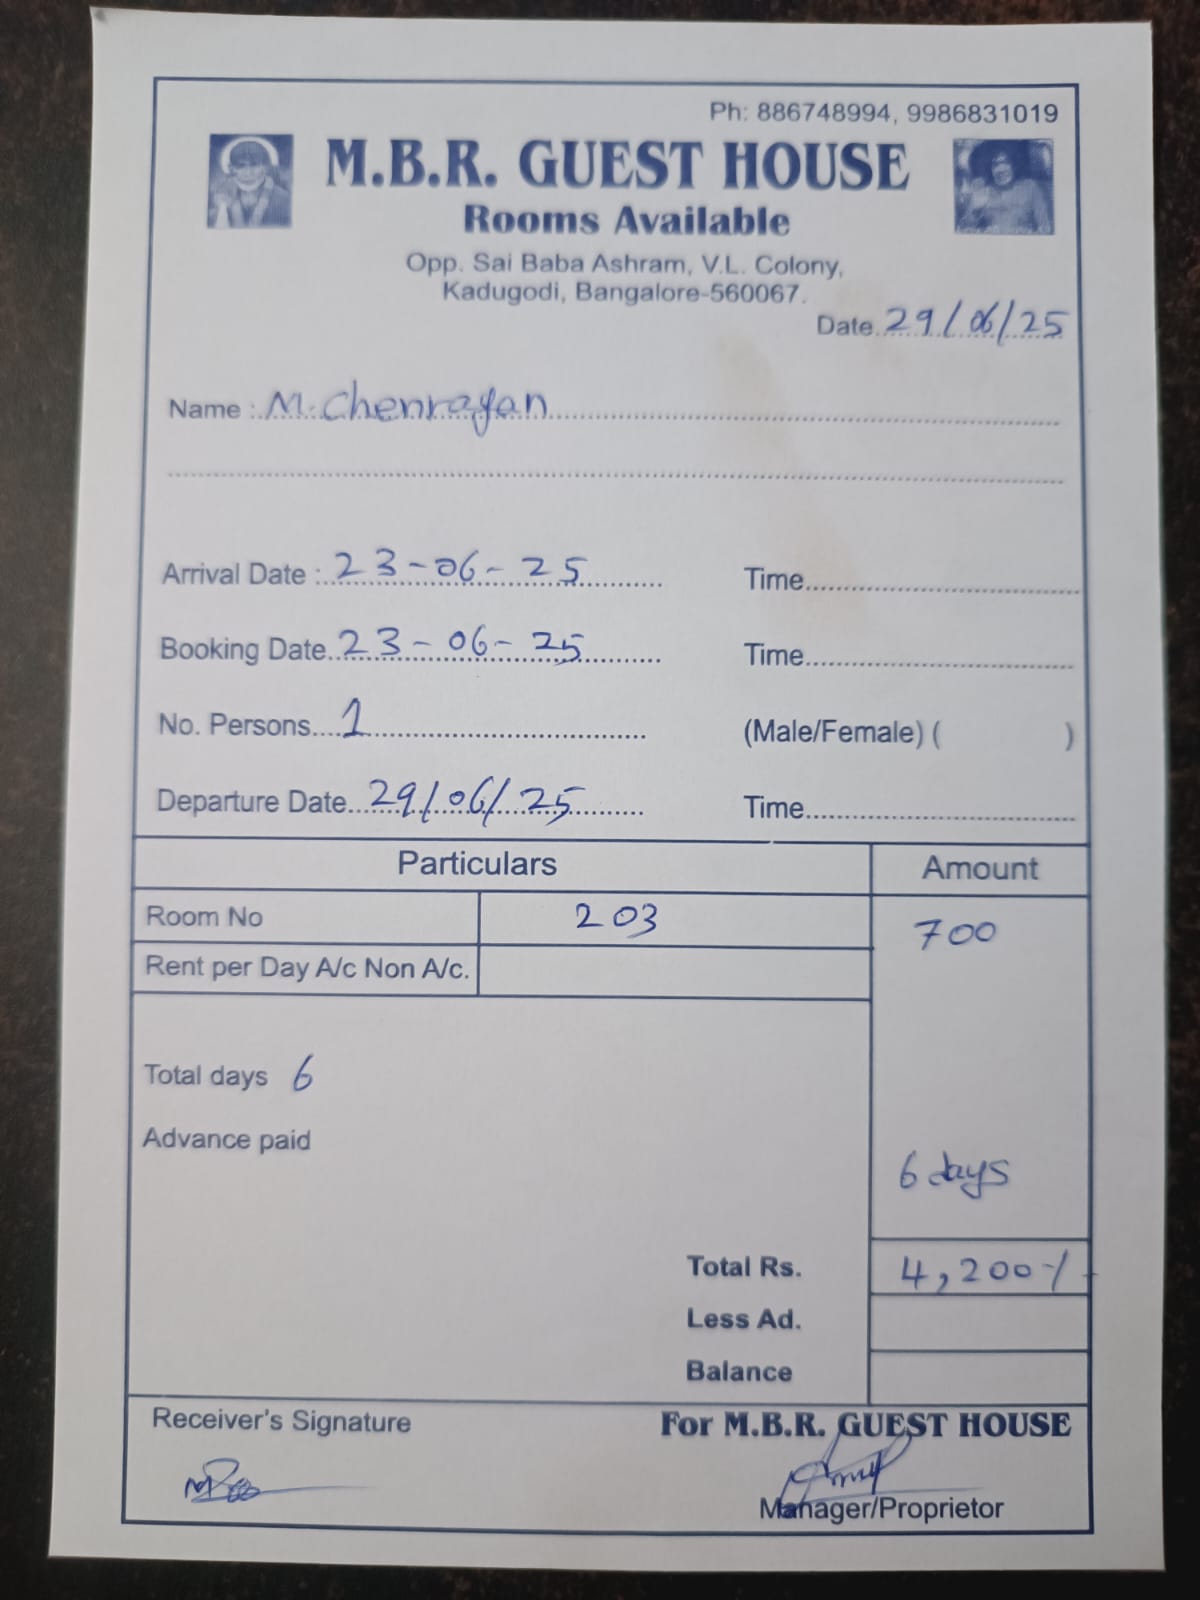 Ph: 886748994, 9986831019
M.B.R. GUEST HOUSE
Rooms Available
Opp. Sai Baba Ashram, V.L. Colony,
Kadugodi, Bangalore-560067.
Date 29/06/25
Name : M. Chenrayan
Arrival Date : 23-06-25 Time
Booking Date 23-06-25 Time
No. Persons 1 (Male/Female) ( )
Departure Date 29/06/25 Time
Particulars Amount
Room No 203 700
Rent per Day A/c Non A/c.
Total days 6
Advance paid
6 days
Total Rs. 4,200-/
Less Ad.
Balance
Receiver's Signature For M.B.R. GUEST HOUSE
Manager/Proprietor